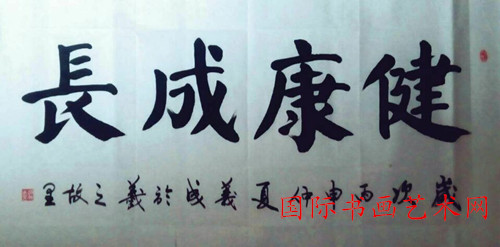 健康成長
歲次丙申仲夏義成於羲之故里
国际书画艺术网